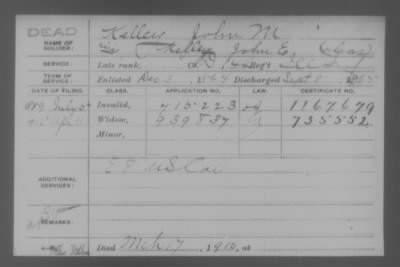 DEAD
NAME OF SOLDIER: Keller, John M.
John E. (alias)
SERVICE: Late rank, Co. D 144 Reg't Ill Inf
TERM OF SERVICE: Enlisted Dec 3, 1864 Discharged Sept 8, 1865
DATE OF FILING. CLASS. APPLICATION NO. LAW. CERTIFICATE NO.
1889 July 5 Invalid, 715223 1167679
Widow, 939837 735552
Minor,
ADDITIONAL SERVICES: E 5 US Cav
REMARKS:
Died Mch 17, 1910, at